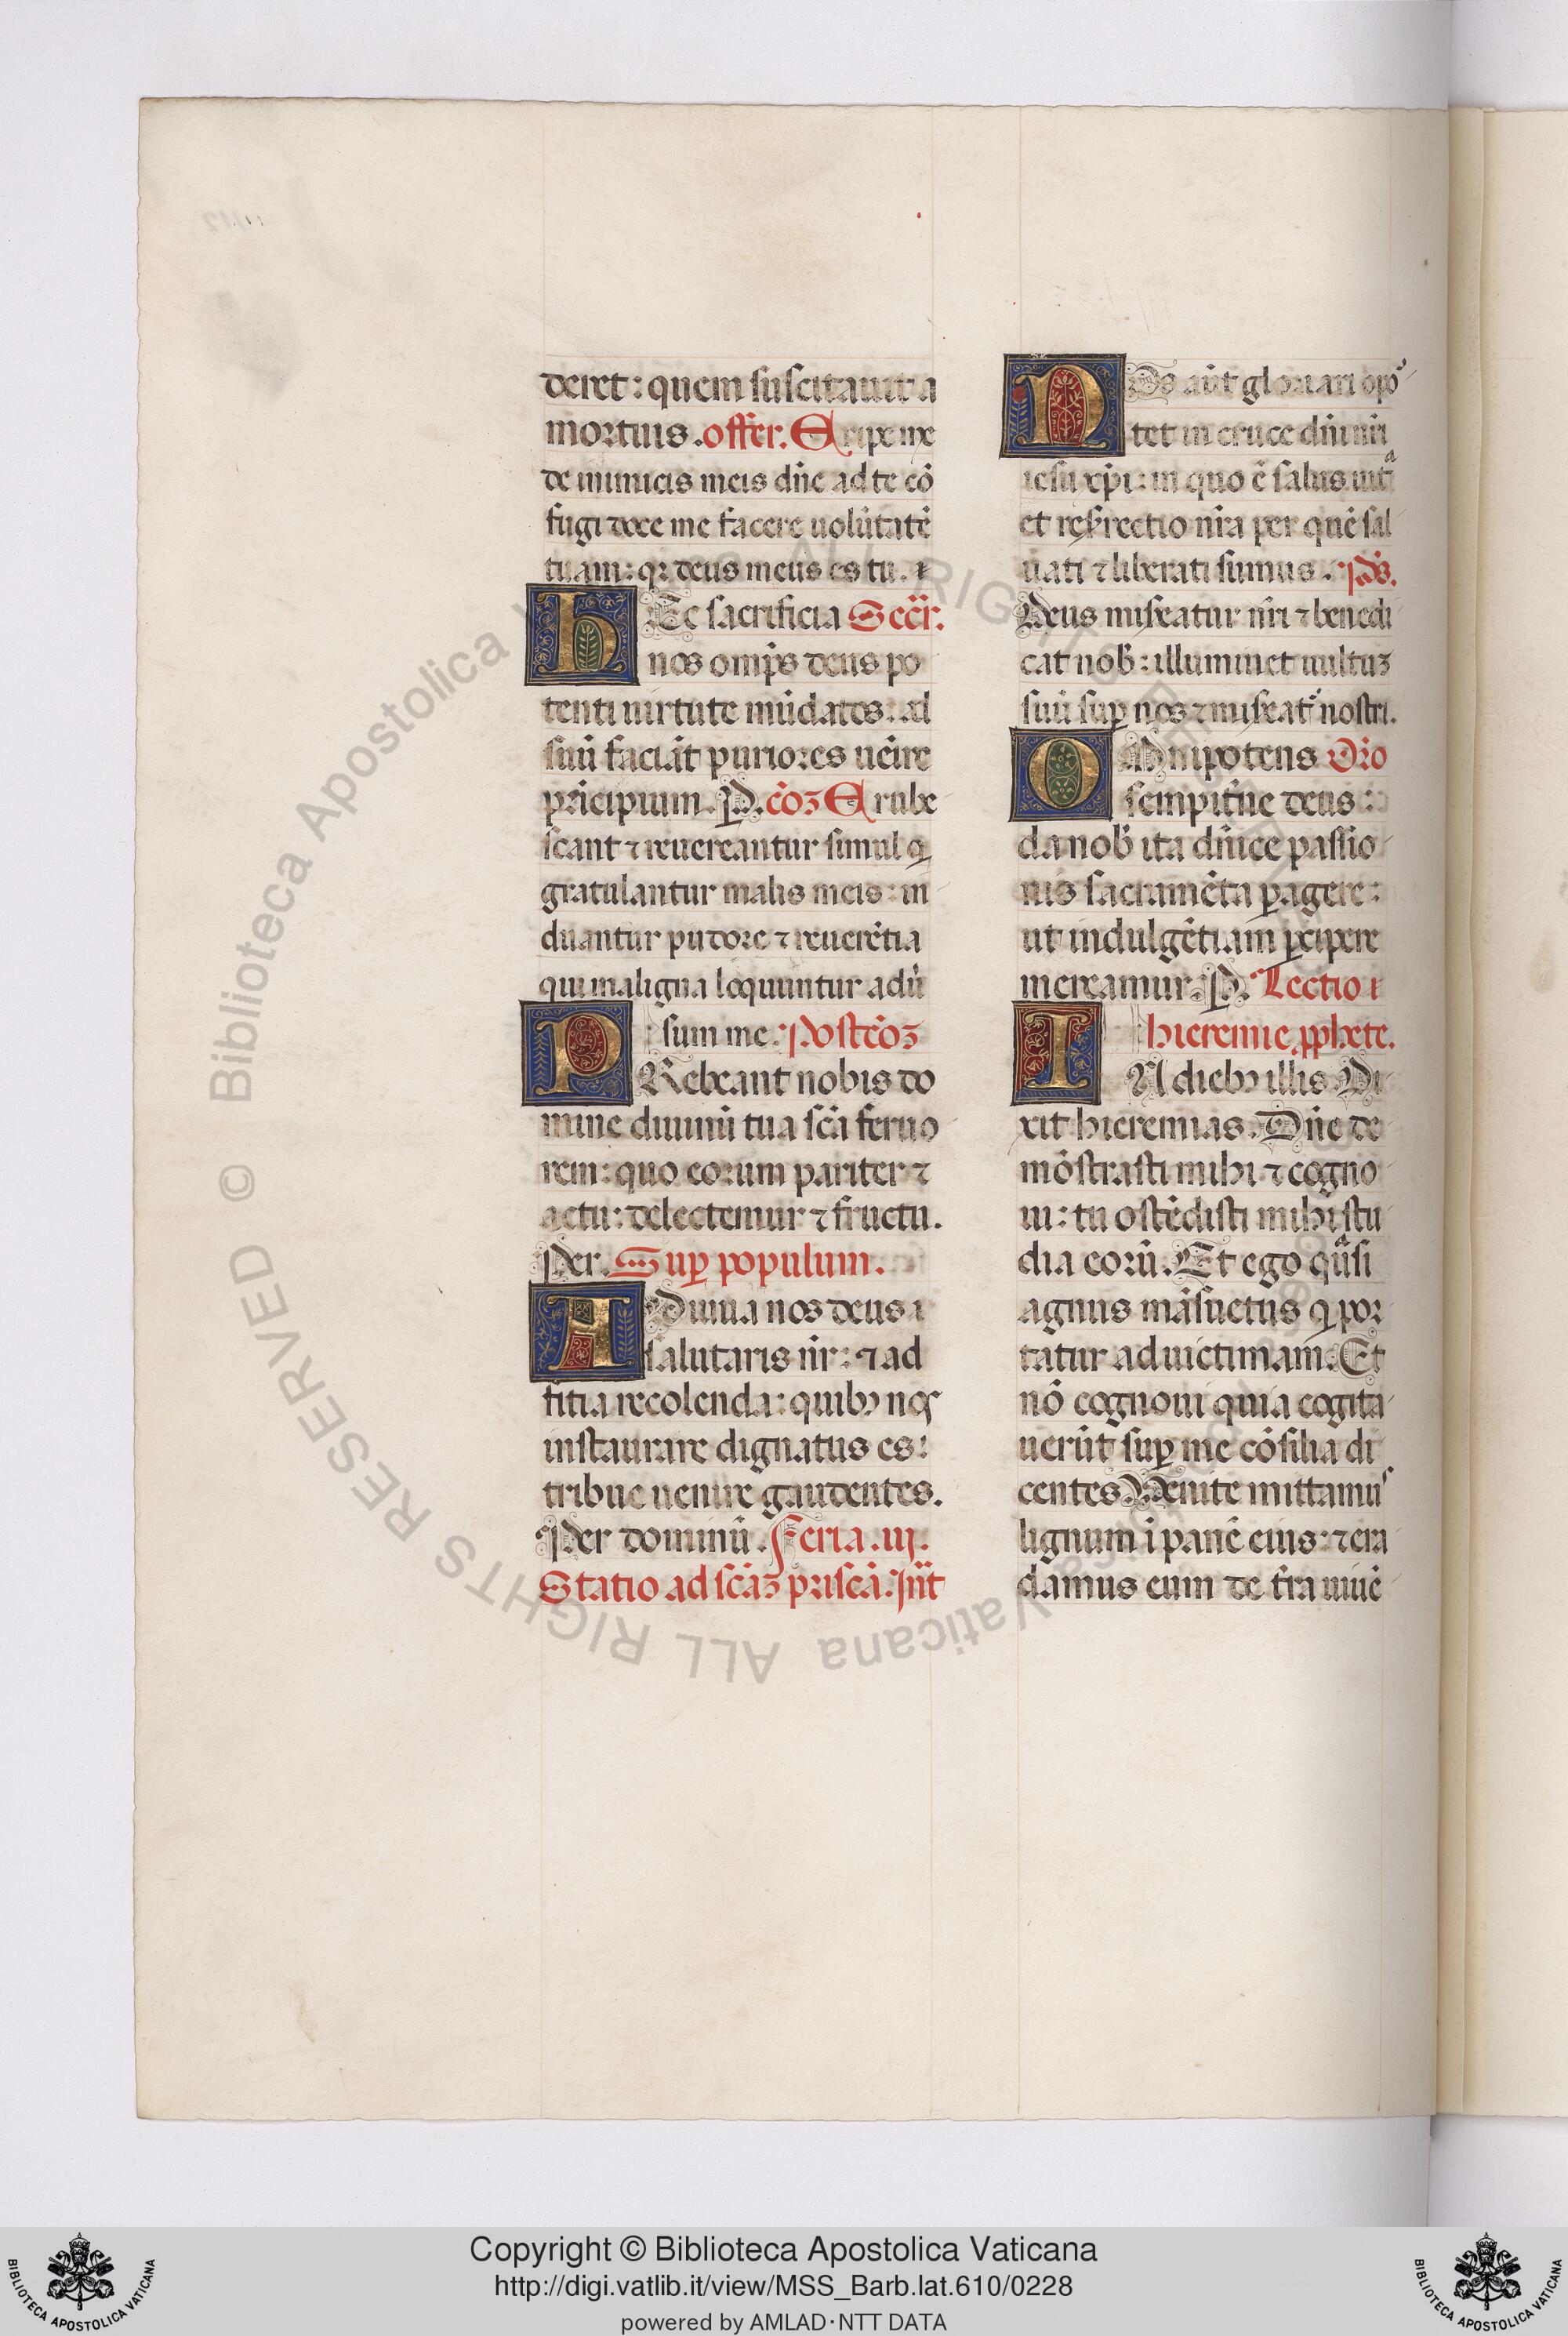 deret: quem suscitauit a
mortuis. offer. Eripe me
de inimicis meis dñe ad te cō
fugi doce me facere uolūtatē
tuam: qꝛ deus meus es tu.
HEc sacrificia Secr̄.
nos omp̄s deus po
tenti uirtute mūdatos: ad
suū faciāt puriores uēire
prīcipium. P. cōꝫ Erube
scant ⁊ reuereantur simul q̄
gratulantur malis meis: in
duantur pudore ⁊ reuerētia
qui maligna loquuntur adū
sum me. Postcōꝫ
PRebeant nobis do
mine diuinū tua scā feruo
rem: quo eorum pariter ⁊
actu: delectemur ⁊ fructu.
Per. Suꝑ populum.
ADiuua nos deus
salutaris nr̄: ⁊ ad
fitia recolenda: quibꝰ nos
instaurare dignatus es:
tribue uenire gaudentes.
Per dominū. Feria .iij.
Statio ad scāꝫ priscā. Int̄
NOs aūt gloriari opoꝛ
tet in cruce dn̄i nr̄i
iesu xp̄i: in quo ē salus uita
et resˀrectio nr̄a per quē sal
uati ⁊ liberati sumus. p̄s.
Deus misˀeatur nr̄i ⁊ benedi
cat nob̄: illuminet uultuꝫ
suū suꝑ nos ⁊ misˀeatˀ nostri.
OMnipotens Or̄o
sempit̄ne deus:
da nob̄ ita dn̄ice passio
nis sacramēta ꝑagere:
ut indulgētiam ꝑcipere
mereamur. P. Lectio
hieremie ꝓphete.
IN diebꝰ illis. Di
xit hieremias. Dn̄e de
mōstrasti mihi ⁊ cogno
ui: tu ostēdisti mihi stu
dia eorū. Et ego quasi
agnus māsuetus q̄ por
tatur ad uictimam. Et
nō cognoui quia cogita
uerūt suꝑ me cōsilia di
centes. Venite mittamus
lignum ī panē eius: ⁊ era
damus eum de tr̄a uiuē
Copyright © Biblioteca Apostolica Vaticana
http://digi.vatlib.it/view/MSS_Barb.lat.610/0228
powered by AMLAD·NTT DATA
BIBLIOTECA APOSTOLICA VATICANA
BIBLIOTECA APOSTOLICA VATICANA
© Biblioteca Apostolica Vaticana ALL RIGHTS RESERVED